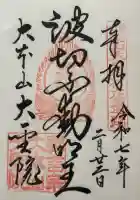 奉拝
令和七年
二月廿三日
波切不動明王
大本山大聖院